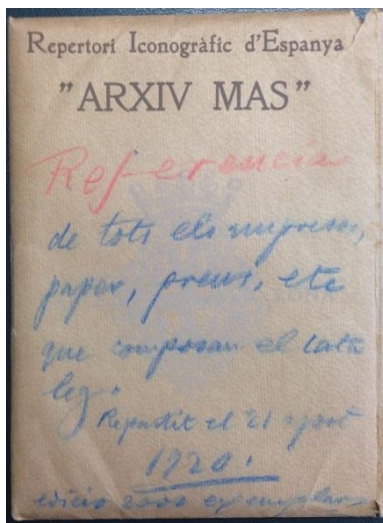 Repertori Iconogràfic d'Espanya
"ARXIV MAS"
Referencia
de tots els impresos,
paper, preus, etc
que composan el catà
leg.
Repartit el 21 agost
1920.
edició 2000 exemplars